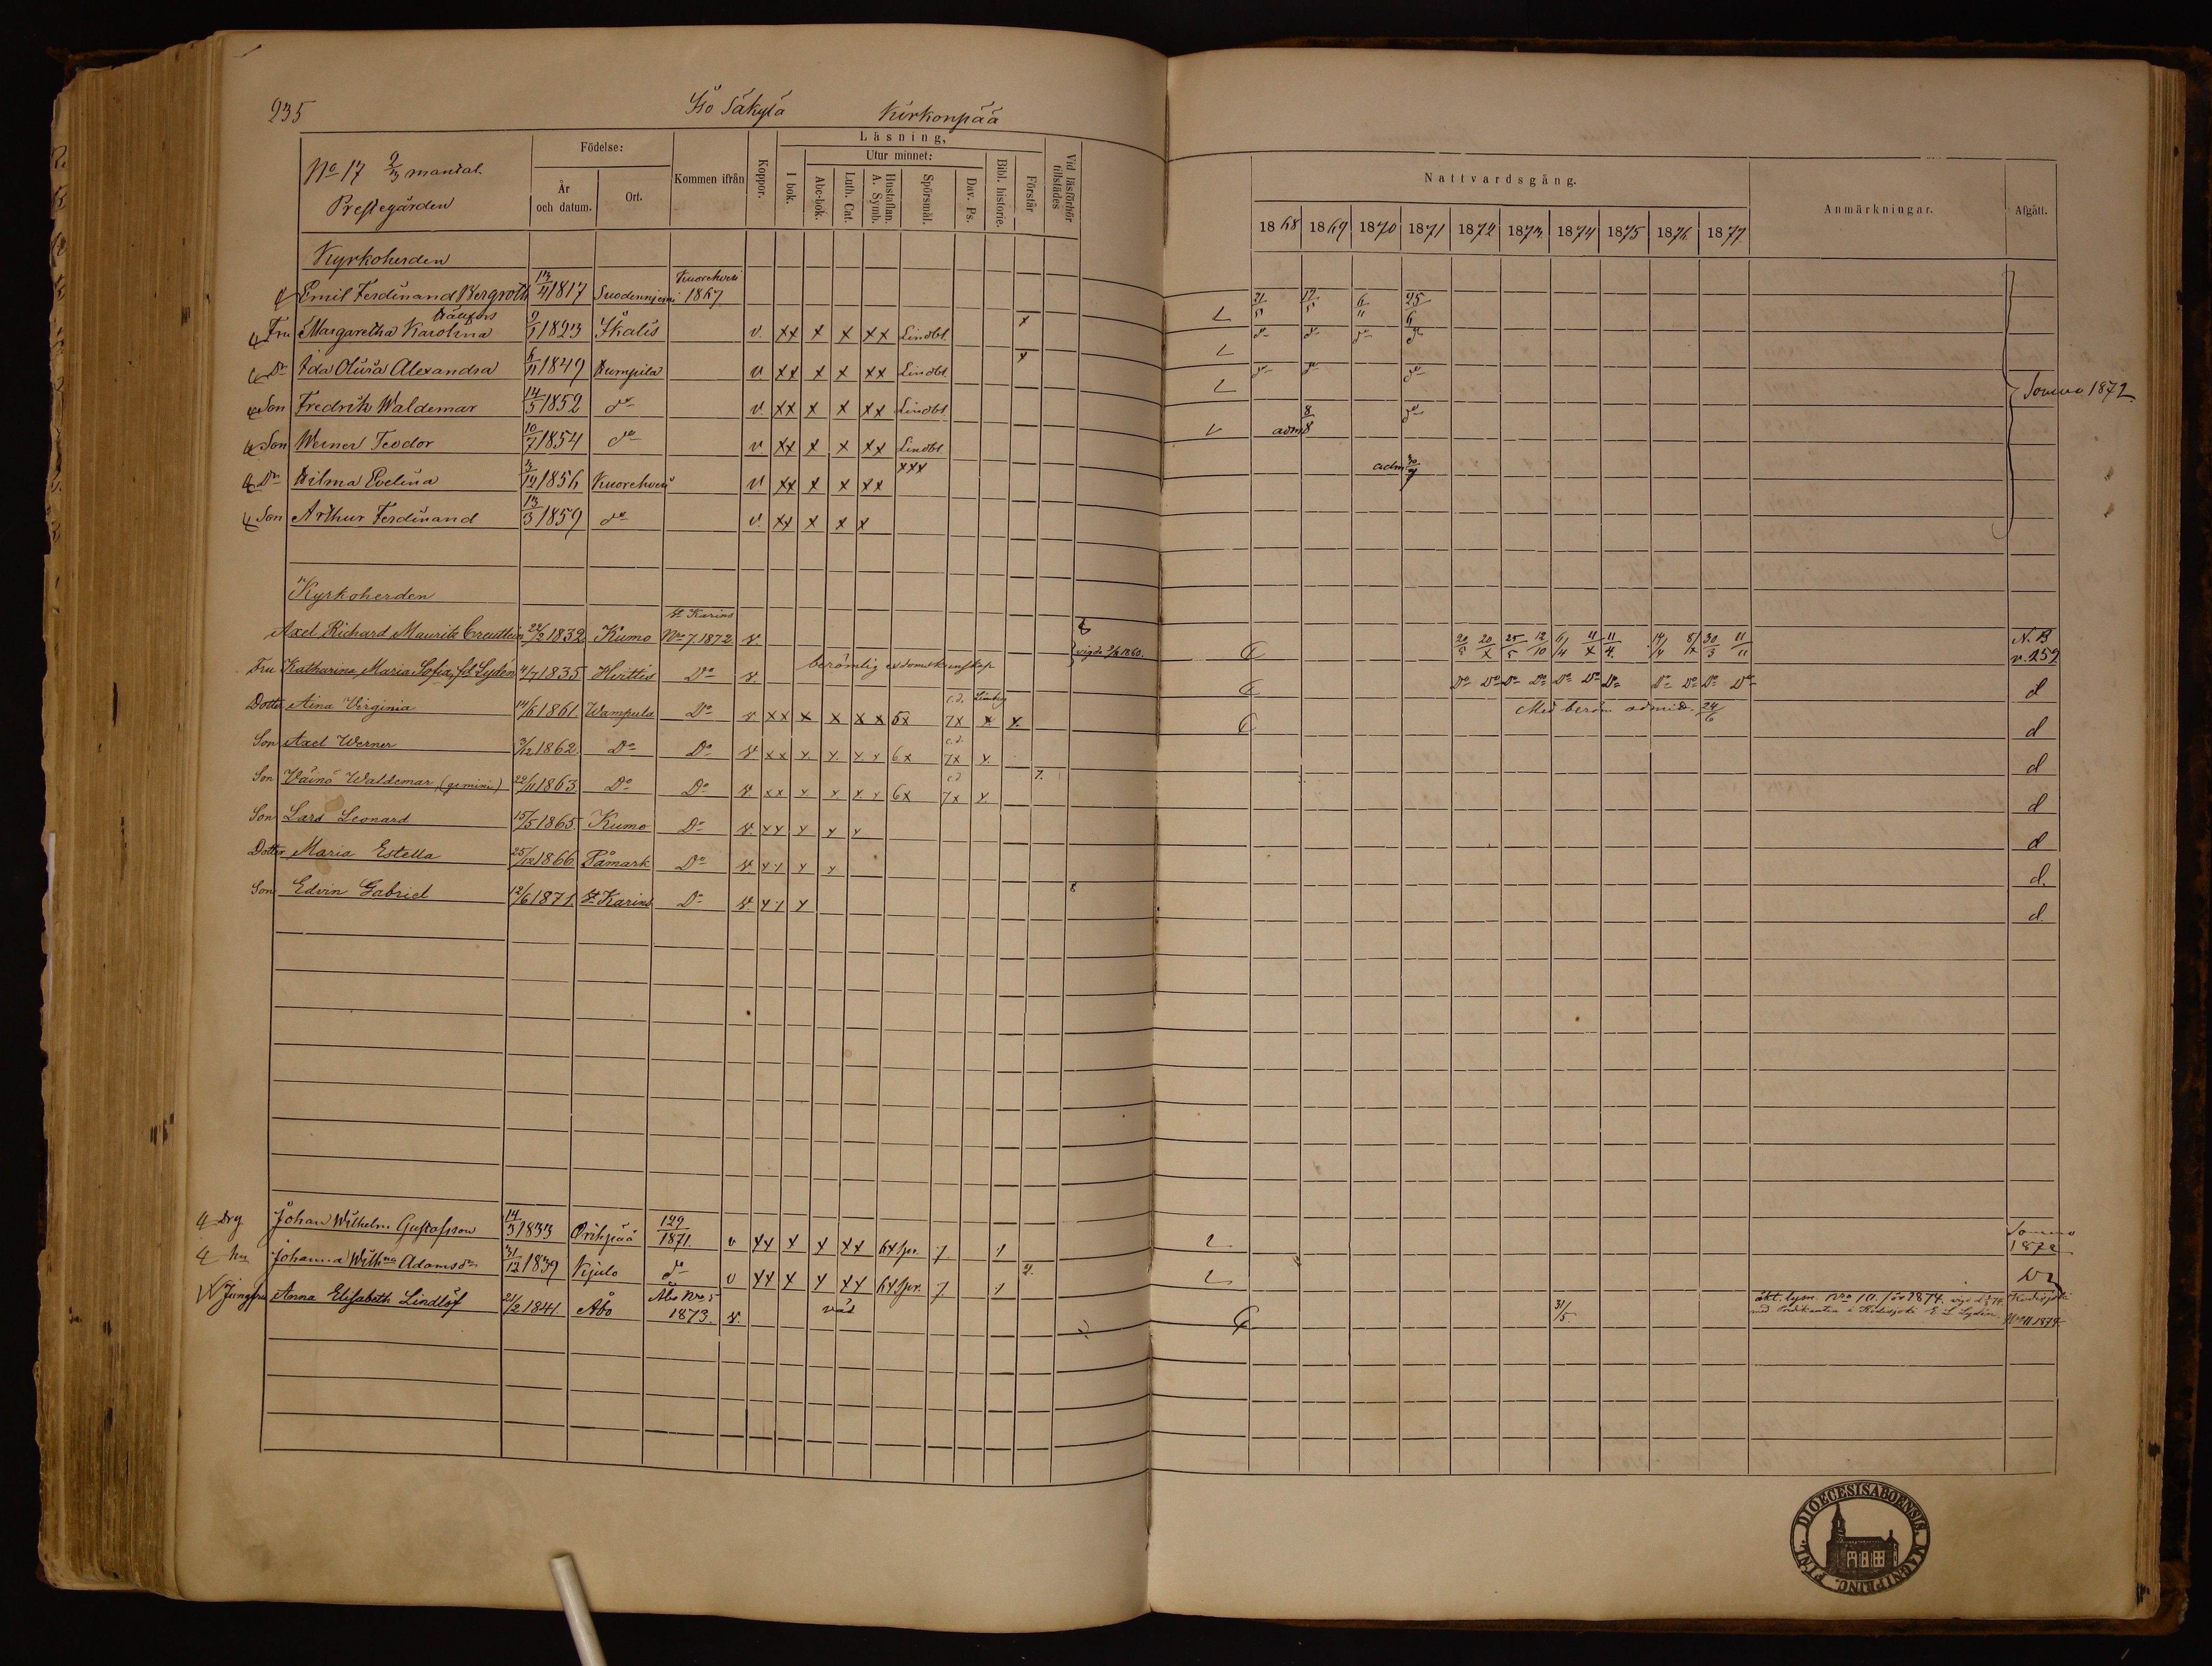 235
Iso Säkylä Kirkonpää
No 17 2/3 mantal.
Prestegården
Födelse:
År och datum.
Ort.
Kommen ifrån
Koppor.
Läsning,
I bok.
Utur minnet:
Abc-bok.
Luth. Cat.
Hustaflan. A. Symb.
Spörsmål.
Dav. Ps.
Bibl. historie.
Förstår
Vid läsförhör tillstädes
Nattvardsgång.
1868 1869 1870 1871 1872 1873 1874 1875 1876 1877
Anmärkningar.
Afgått.
Kyrkoherden
Emil Ferdinand Bergroth 13/4 1817 Suodenniemi Kuorehvesi 1867 21/5 17/5 6/11 25/6
Fru Margaretha Karolina 2/1 1823 Ikalis v. xx x x xx Lindbl. x do do do do
Dr Ida Olivia Alexandra 6/11 1849 Humpila v xx x x xx Lindbl. x do do do
Son Fredrik Waldemar 14/5 1852 do v. xx x x xx Lindbl. 8/8 do Somero 1872.
Son Werner Teodor 10/7 1854 do v xx x x xx Lindbl. adm
Dr Hilma Evelina 3/12 1856 Kuorehvesi v xx x x xx xxx adm
Son Arthur Ferdinand 13/3 1859 do v. xx x x x
Kyrkoherden
Axel Richard Maurits Creutlein 22/2 1832 Kumo St Karins No 7 1872 v. 20/5 20/x 25/5 12/10 6/4 11/x 11/4 14/4 8/x 30/3 11/11 N. B v. 252
Fru Katharina Maria Sofia, f. Lydén 4/7 1835 Hvittis Do v. berömlig vigde 1860. Do Do Do Do Do Do Do Do Do Do Do d
Dotter Aina Virginia 14/6 1861 Wampula Do v xx x x x x 6x 7x x x Med beröm admitt. 24/6 d
Son Axel Werner 3/12 1862 Do Do v. xx x x x x 6x 7x x d
Son Väinö Waldemar (gemini) 22/11 1863 Do Do v. xx x x x x 6x 7x x 7. d
Son Lars Leonard 15/5 1865 Kumo Do v. xx x x x d
Dotter Maria Estella 25/12 1866 Påmark Do v xx x x d.
Son Edvin Gabriel 12/6 1871 St Karins Do v. xx x d.
Drg Johan Wilhelm Gustafsson 14/3 1833 Oripää 129 1871. v xx x x xx 6x Spr. 7 1 Somero 1872
hu Johanna Wilhna Adamsdr 31/12 1839 Kjulo do v xx x x xx 6x Spr. 7 1 2.
Jungfru Anna Elisabeth Lindlöf 21/2 1841 Åbo Åbo No 5 1873. v. 31/5 äkt. lysn. No 10. 1874.
med Predikanten i E L Lydén No 11 1874.
DIOECESIS ABOENSIS. MAGNI PRINC. FINL.